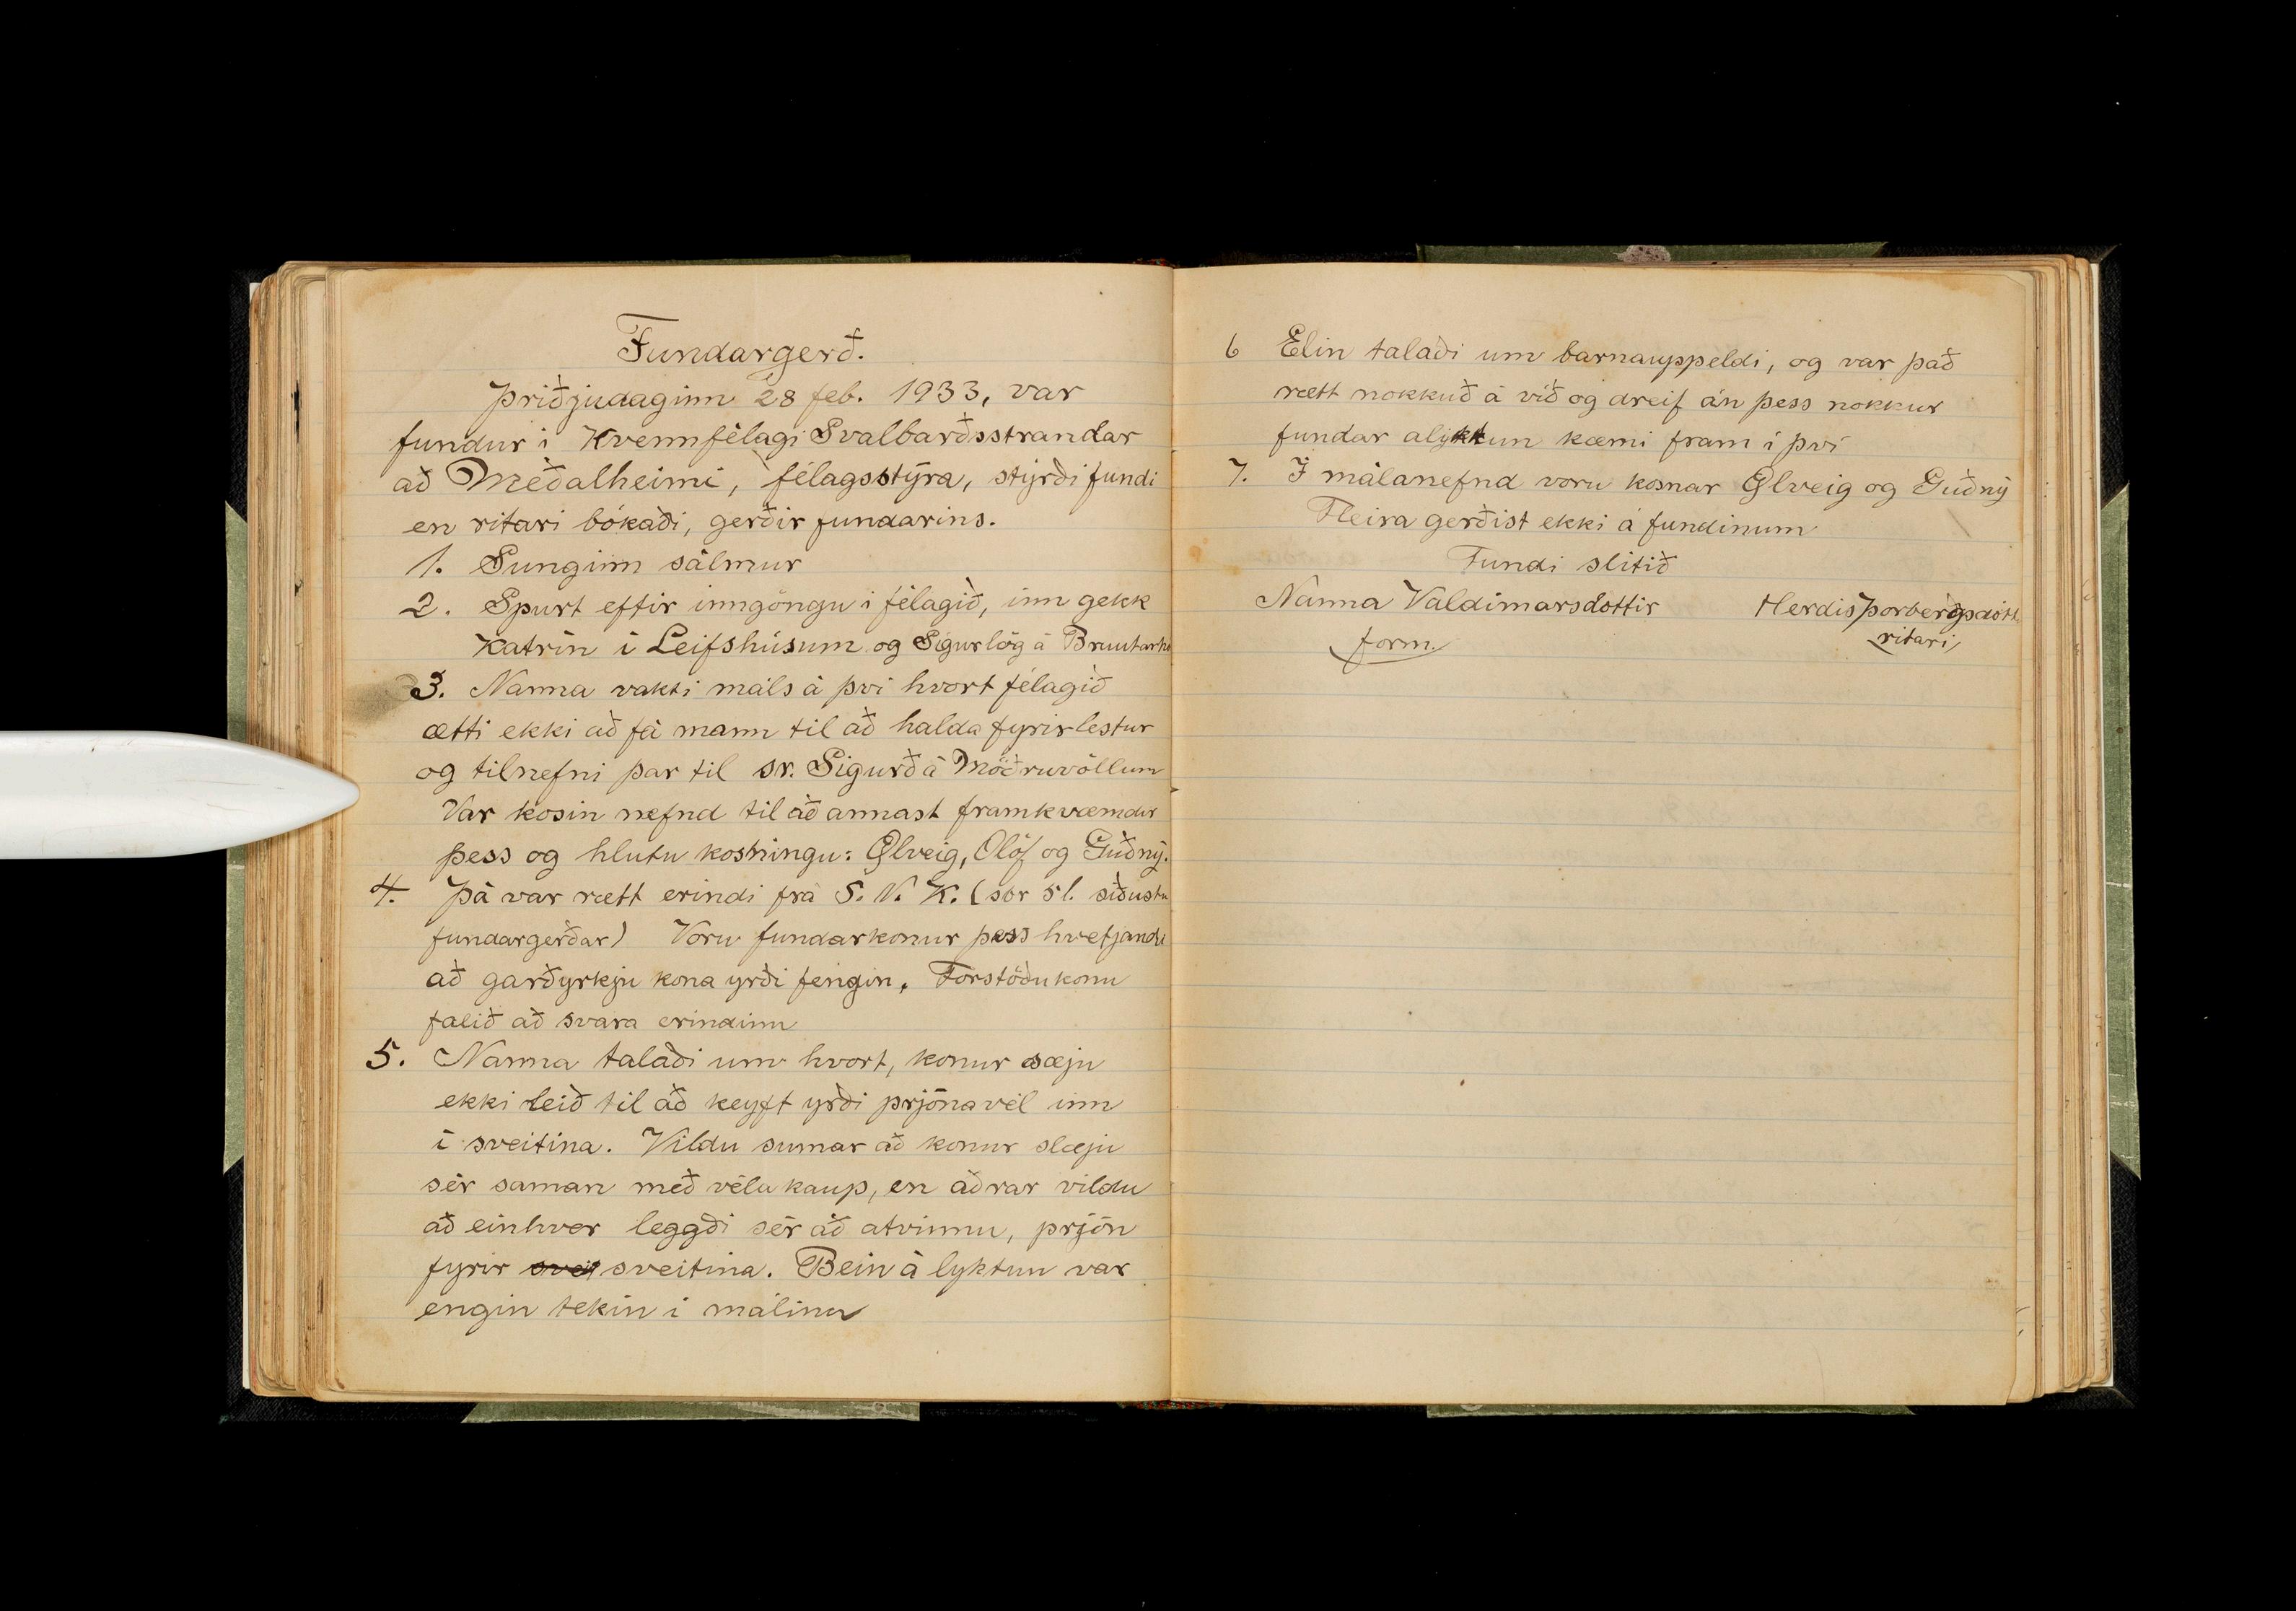 Fundargerð.
Þriðjudaginn 28 feb. 1933, var
fundur í Kvennfélagi Svalbarðsstrandar
að Meðalheimi, félagsstýra, stýrði fundi
en ritari bókaði, gerðir fundarins.
1. Sunginn sálmur
2. Spurt eftir inngöngu í félagið, inn gekk
Katrín í Leifshúsum og Sigurlög á
3. Nanna vakti máls á því hvort félagið
ætti ekki að fá mann til að halda fyrirlestur
og tilnefni þar til sr. Sigurð á Möðruvöllum
Var kosin nefnd til að annast framkvæmdir
þess og hlutu kosningu: Ólveig, Ólöf og Guðný.
4. Þá var rætt erindi frá S. N. K. (sbr 5 l. síðustu
fundargerðar) Voru fundarkonur þess hvetjandi
að garðyrkju kona yrði fengin, Forstöðukonu
falið að svara erindinu
5. Nanna talaði um hvort, konur sæju
ekki leið til að keyft yrði prjónavél inn
í sveitina. Vildu sumar að konur slæju
sér saman með vélu kaup, en aðrar vildu
að einhver leggði sér að atvinnu, prjón
fyrir svei sveitina. Bein á lyktun var
engin tekin í málinu
6 Elin talaði um barnauppeldi, og var það
rætt nokkuð á víð og dreif án þess nokkur
fundar alyktun kæmi fram í því
7. Í málanefnd voru kosnar Ólveig og Guðný
Fleira gerðist ekki á fundinum
Fundi slitið
Nanna Valdimarsdottir Herdis Þorbergsdótt
form. ritari